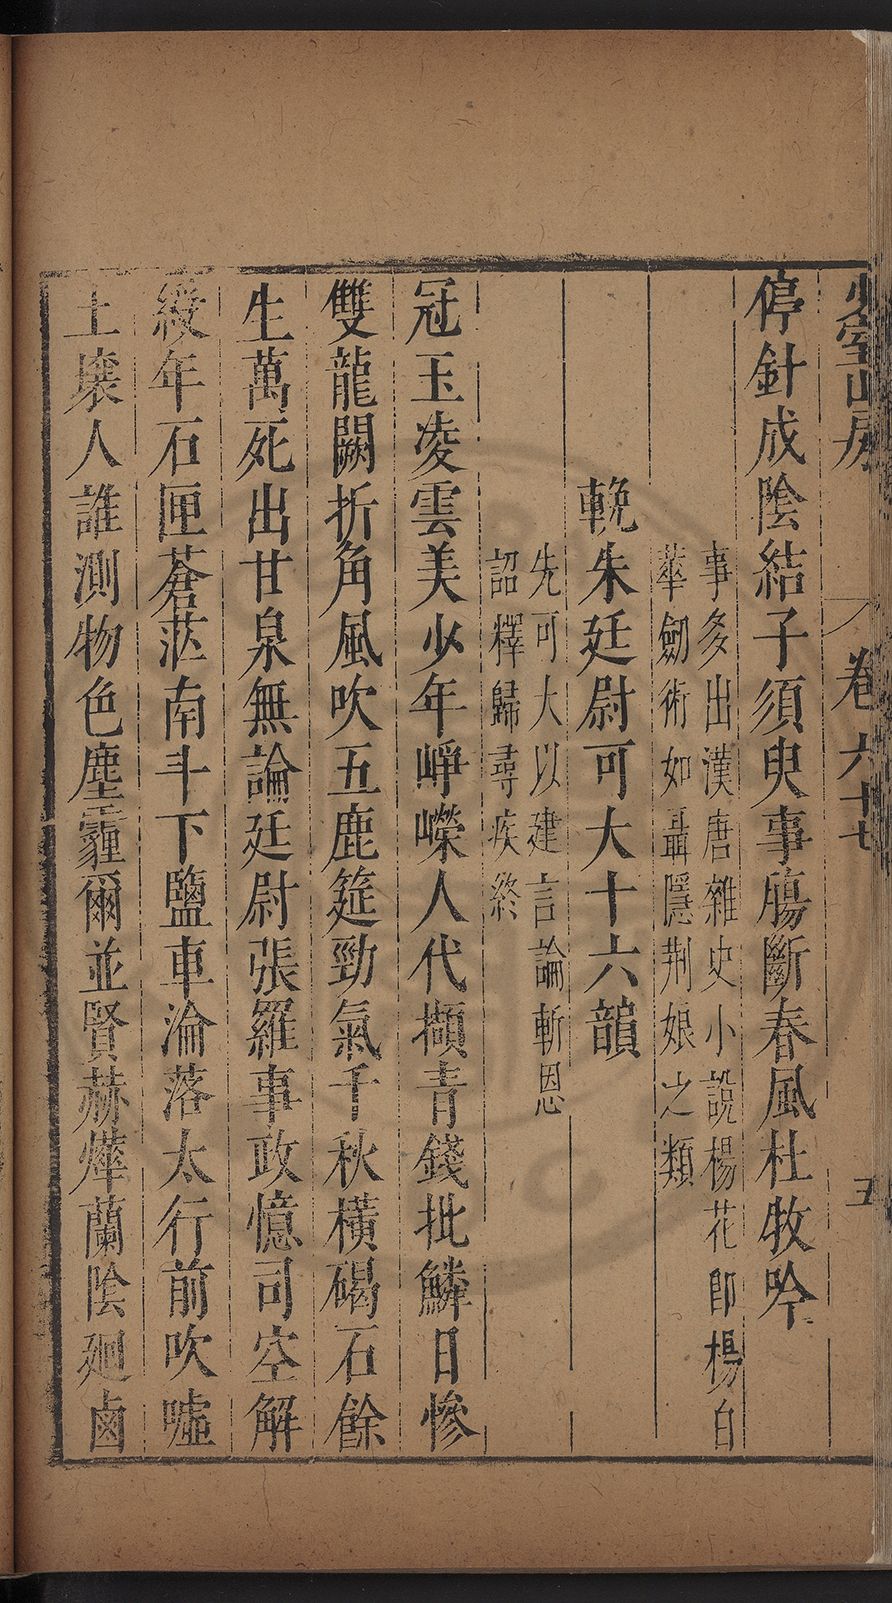 少室山房
卷六十七
五
停針成陰結子須臾事膓斷春風杜牧吟
事多出漢唐雜史小說楊花即楊白
華劒術如聶隱荆娘之類
輓朱廷尉可大十六韻
先可大以建言論斬恩
詔釋歸尋疾終
冠玉凌雲美少年崢嶸人代擷青錢批鱗日慘
雙龍闕折角風吹五鹿筵勁氣千秋橫碣石餘
生萬死出甘泉無論廷尉張羅事政憶司空解
綬年石匣蒼茫南斗下鹽車淪落太行前吹噓
土壤人誰測物色塵霾爾並賢赫燁蘭陰廻鹵